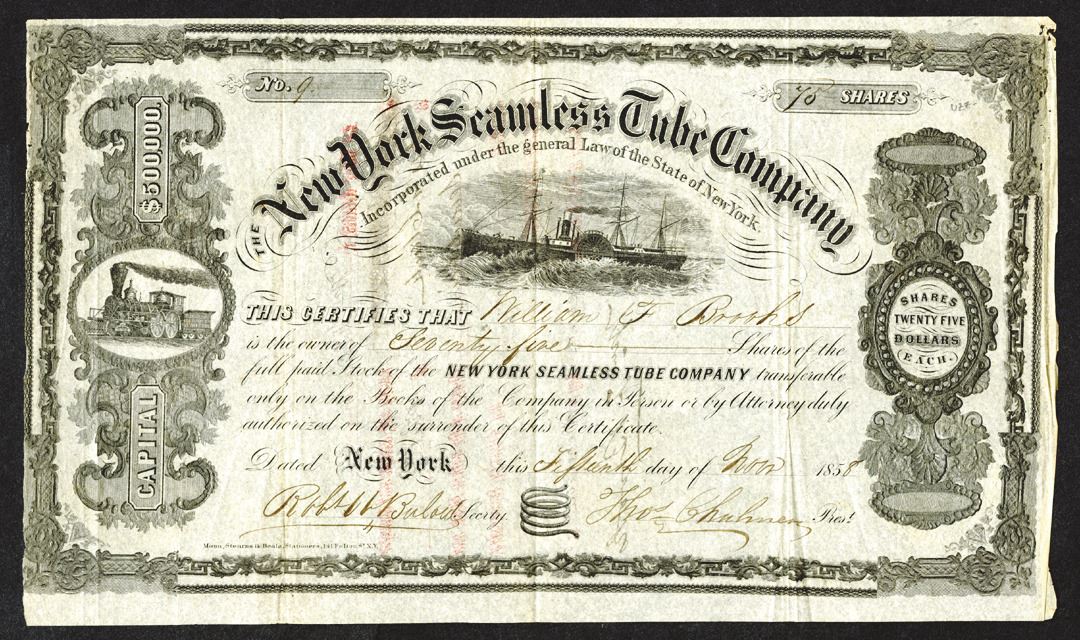 No. 9.
75 SHARES
$500,000
THE New York Seamless Tube Company
Incorporated under the general Law of the State of New York.
SHARES
TWENTY FIVE
DOLLARS
EACH.
THIS CERTIFIES THAT William F Brooks
is the owner of Seventy five Shares of the
full paid Stock of the NEW YORK SEAMLESS TUBE COMPANY transferable
only on the Books of the Company in Person or by Attorney duly
authorized on the surrender of this Certificate.
CAPITAL
Dated New York this Fifteenth day of Nov 1858
Robt Secrty. Thos Prest
Mann, Stearns & Beale, Stationers, 141 Fulton St. N.Y.